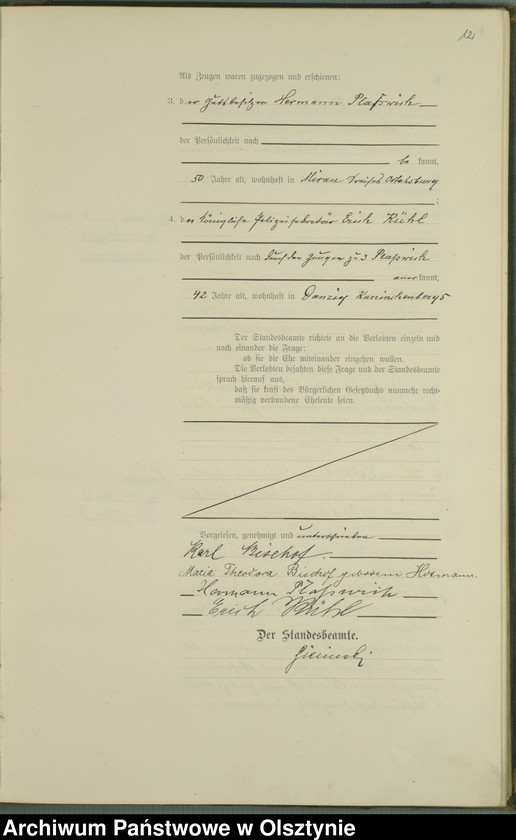 12
Als Zeugen waren zugezogen und erschienen:
3. der Gutsbesitzer Hermann Plaßwich
der Persönlichkeit nach
be kannt,
50 Jahre alt, wohnhaft in Kreises Ortelsburg
;
4. der Königliche Polizeisekretär Erich Kühl
der Persönlichkeit nach durch den Zeugen zu 3 Plaßwich
anerkannt,
42 Jahre alt, wohnhaft in Danzig Kaninchenberg 5
Der Standesbeamte richtete an die Verlobten einzeln und
nach einander die Frage:
ob sie die Ehe miteinander eingehen wollen.
Die Verlobten bejahten diese Frage und der Standesbeamte
sprach hierauf aus,
daß sie kraft des Bürgerlichen Gesetzbuchs nunmehr recht-
mäßig verbundene Eheleute seien.
Vorgelesen, genehmigt und unterschrieben
Karl Bischof.
Maria Theodora Bischof geborene
Hermann Plaßwich
Erich Kühl
Der Standesbeamte.
Archiwum Państwowe w Olsztynie